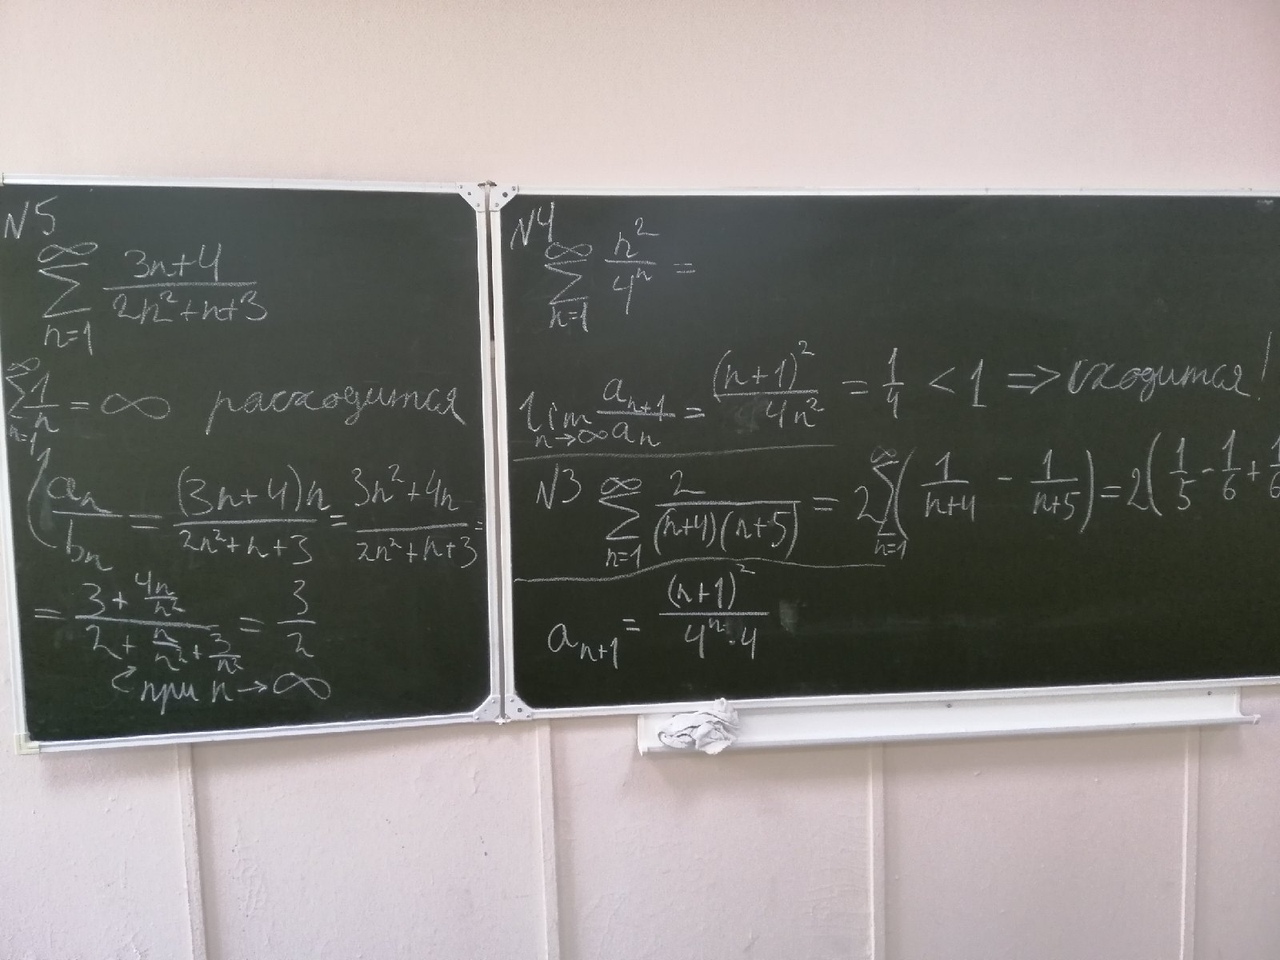 N5
∞ ∑ n=1 (3n+4)/(2n²+n+3)
∞ ∑ n=1 1/n = ∞ расходится
(aₙ/bₙ = (3n+4)n/(2n²+n+3) = (3n²+4n)/(2n²+n+3) =
= (3+4n/n²)/(2+n/n²+3/n²) = 3/2
при n→∞
N4
∞ ∑ n=1 n²/4ⁿ =
lim n→∞ aₙ₊₁/aₙ = (n+1)²/4n² = 1/4 < 1 ⇒ сходится!
N3 ∞ ∑ n=1 2/((n+4)(n+5)) = 2 ∞ ∑ n=1 (1/(n+4) - 1/(n+5)) = 2(1/5 - 1/6 + 1/6
aₙ₊₁ = (n+1)²/(4ⁿ·4)